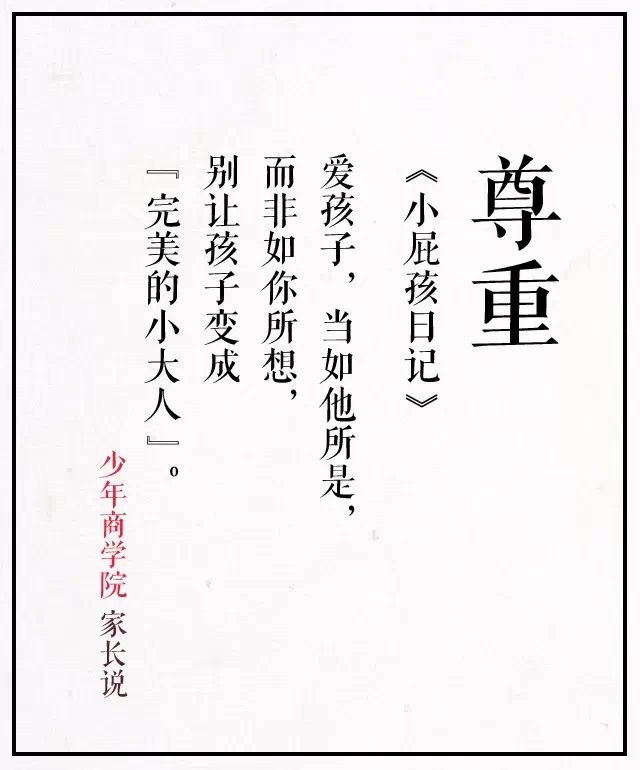 尊重
《小屁孩日记》
爱孩子，当如他所是，
而非如你所想，
别让孩子变成
『完美的小大人』。
少年商学院 家长说